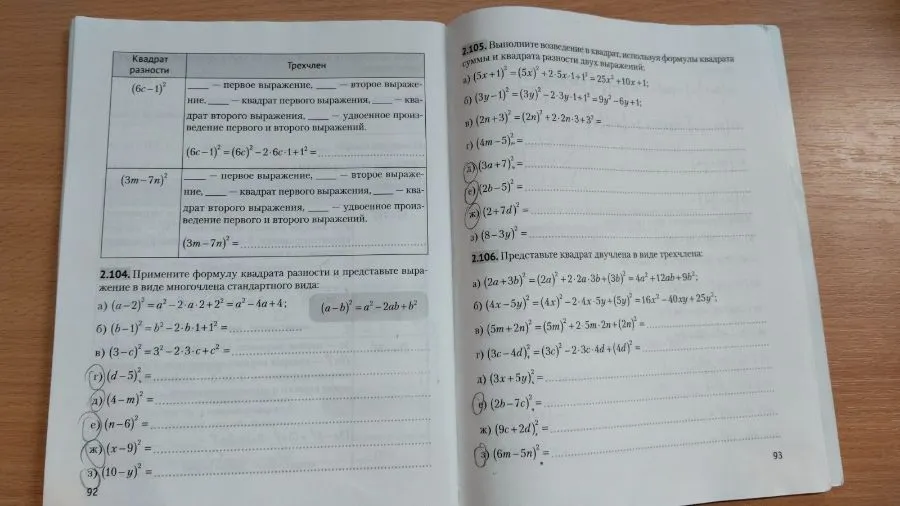 Квадрат разности
Трехчлен
(6c−1)²
____ — первое выражение, ____ — второе выраже-
ние, ____ — квадрат первого выражения, ____ — ква-
драт второго выражения, ____ — удвоенное произ-
ведение первого и второго выражений.
(6c−1)² = (6c)² − 2·6c·1+1² =
(3m−7n)²
____ — первое выражение, ____ — второе выраже-
ние, ____ — квадрат первого выражения, ____ — ква-
драт второго выражения, ____ — удвоенное произ-
ведение первого и второго выражений.
(3m−7n)² =
2.104. Примените формулу квадрата разности и представьте выра-
жение в виде многочлена стандартного вида:
а) (a−2)² = a² − 2·a·2+2² = a² − 4a+4;
(a−b)² = a² − 2ab+b²
б) (b−1)² = b² − 2·b·1+1² =
в) (3−c)² = 3² − 2·3·c+c² =
г) (d−5)² =
д) (4−m)² =
е) (n−6)² =
ж) (x−9)² =
з) (10−y)² =
92
2.105. Выполните возведение в квадрат, используя формулы квадрата
суммы и квадрата разности двух выражений:
а) (5x+1)² = (5x)² + 2·5x·1+1² = 25x² + 10x+1;
б) (3y−1)² = (3y)² − 2·3y·1+1² = 9y² − 6y+1;
в) (2n+3)² = (2n)² + 2·2n·3+3² =
г) (4m−5)² =
д) (3a+7)² =
е) (2b−5)² =
ж) (2+7d)² =
з) (8−3y)² =
2.106. Представьте квадрат двучлена в виде трехчлена:
а) (2a+3b)² = (2a)² + 2·2a·3b+(3b)² = 4a² + 12ab+9b²;
б) (4x−5y)² = (4x)² − 2·4x·5y+(5y)² = 16x² − 40xy+25y²;
в) (5m+2n)² = (5m)² + 2·5m·2n+(2n)² =
г) (3c−4d)² = (3c)² − 2·3c·4d+(4d)² =
д) (3x+5y)² =
е) (2b−7c)² =
ж) (9c+2d)² =
з) (6m−5n)² =
93